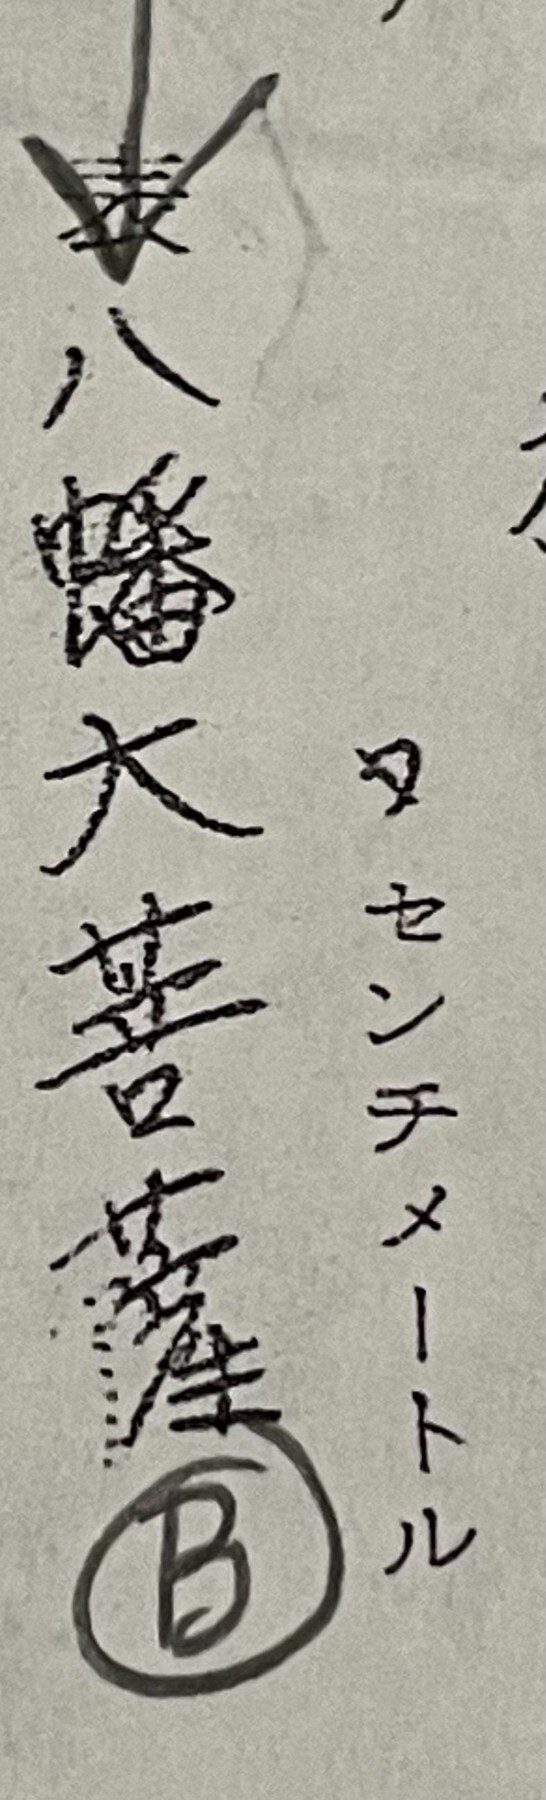 センチメートル
八幡大菩薩
B